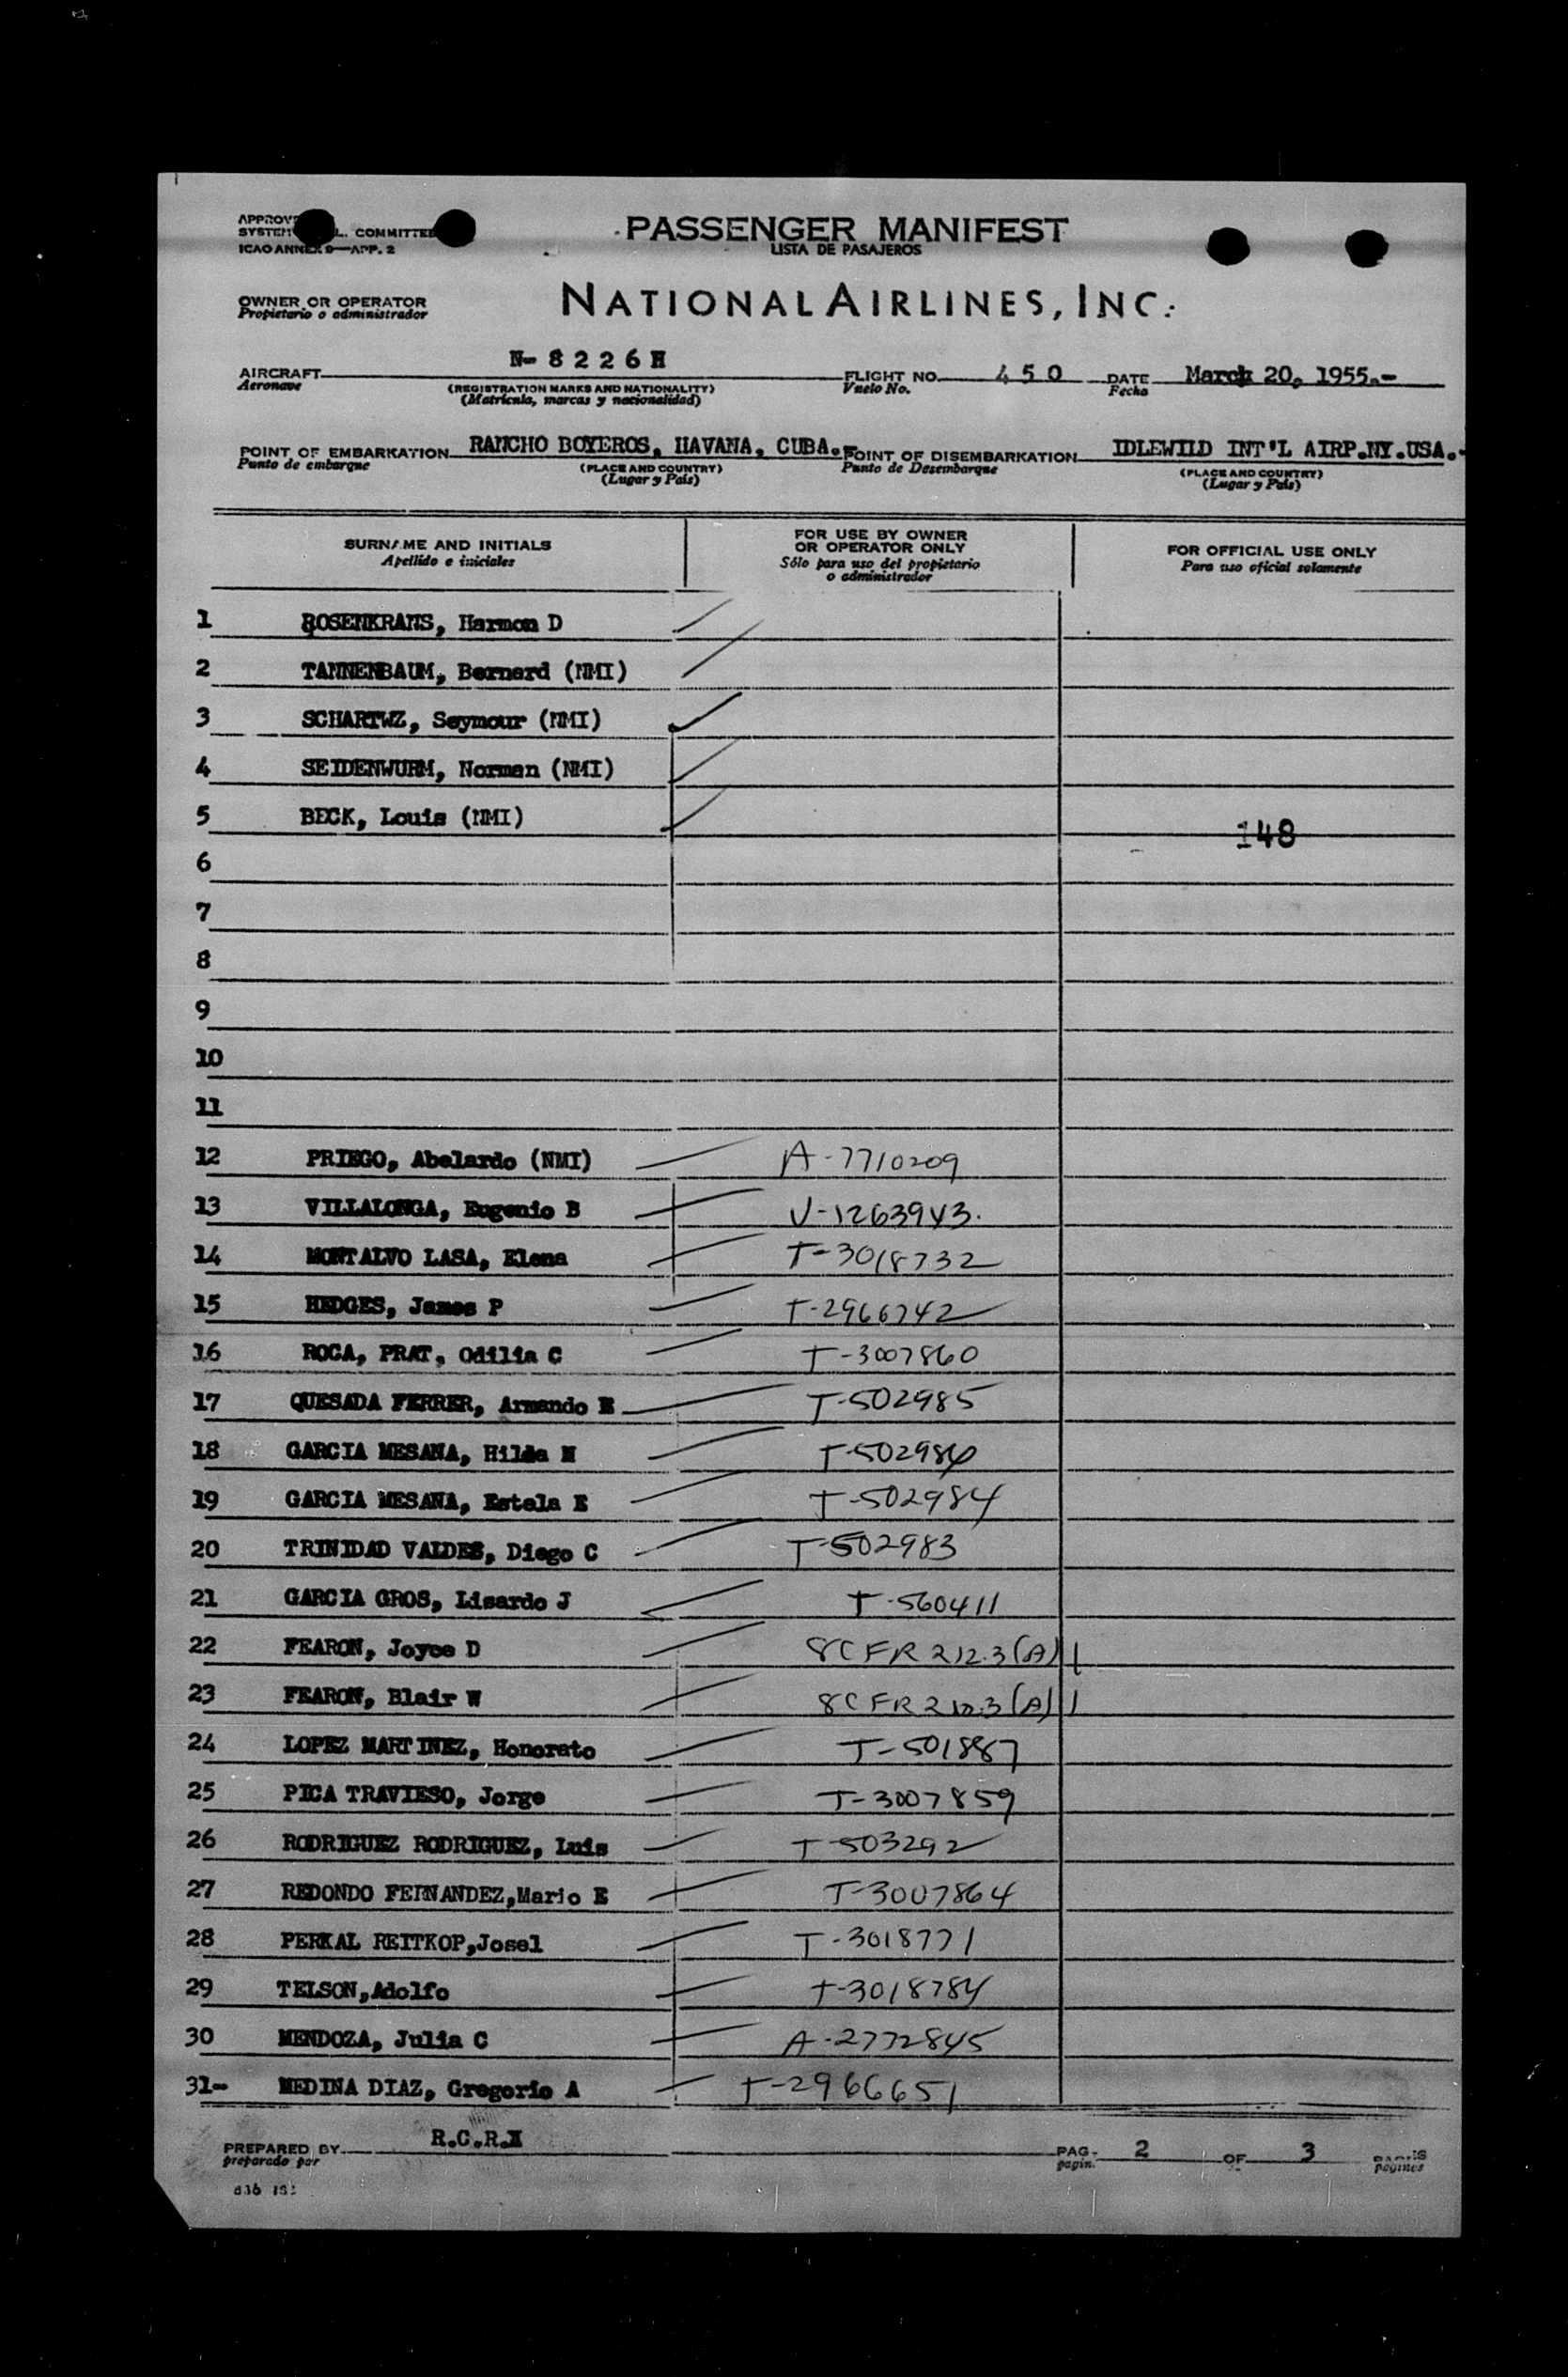 PASSENGER MANIFEST
LISTA DE PASAJEROS
SYSTEM L. COMMITTEE
ICAO ANNEX 9—APP. 2
OWNER OR OPERATOR
Propietario o administrador
NATIONAL AIRLINES, INC.
AIRCRAFT N- 8 2 2 6 H FLIGHT NO. 4 5 0 DATE March 20, 1955.-
Aeronave (REGISTRATION MARKS AND NATIONALITY) Vuelo No. Fecha
(Matrícula, marcas y nacionalidad)
POINT OF EMBARKATION RANCHO BOYEROS, HAVANA, CUBA. POINT OF DISEMBARKATION IDLEWILD INT'L AIRP.NY.USA.-
Punto de embarque (PLACE AND COUNTRY) Punto de Desembarque (PLACE AND COUNTRY)
(Lugar y País) (Lugar y País)
SURNAME AND INITIALS FOR USE BY OWNER OR OPERATOR ONLY FOR OFFICIAL USE ONLY
Apellido e iniciales Sólo para uso del propietario o administrador Para uso oficial solamente
1 ROSENKRANS, Harmon D
2 TANNENBAUM, Bernard (NMI)
3 SCHARTWZ, Seymour (NMI)
4 SEIDENWURM, Norman (NMI)
5 BECK, Louis (NMI) 148
6
7
8
9
10
11
12 PRIEGO, Abelardo (NMI) A-7710209
13 VILLALONGA, Eugenio B V-1263943.
14 MONTALVO LASA, Elena T-3018732
15 HEDGES, James P T-2966742
16 ROCA, PRAT, Odilia C T-3007860
17 QUESADA FERRER, Armando E T-502985
18 GARCIA MESANA, Hilda N T-502986
19 GARCIA MESANA, Estela E T-502984
20 TRINIDAD VALDES, Diego C T-502983
21 GARCIA GROS, Lisardo J T-560411
22 FEARON, Joyce D 8 CFR 212.3(A) 1
23 FEARON, Blair W 8 CFR 212.3(A) 1
24 LOPEZ MARTINEZ, Honorato T-501887
25 PICA TRAVIESO, Jorge T-3007859
26 RODRIGUEZ RODRIGUEZ, Luis T-503292
27 REDONDO FERNANDEZ,Mario E T-3007864
28 PERKAL REITKOP,Josel T-3018771
29 TELSON,Adolfo T-3018784
30 MENDOZA, Julia C A-2772845
31- MEDINA DIAZ, Gregorio A T-2966651
PREPARED BY R.C.R. PAG. 2 OF 3
preparado por pagin. paginas